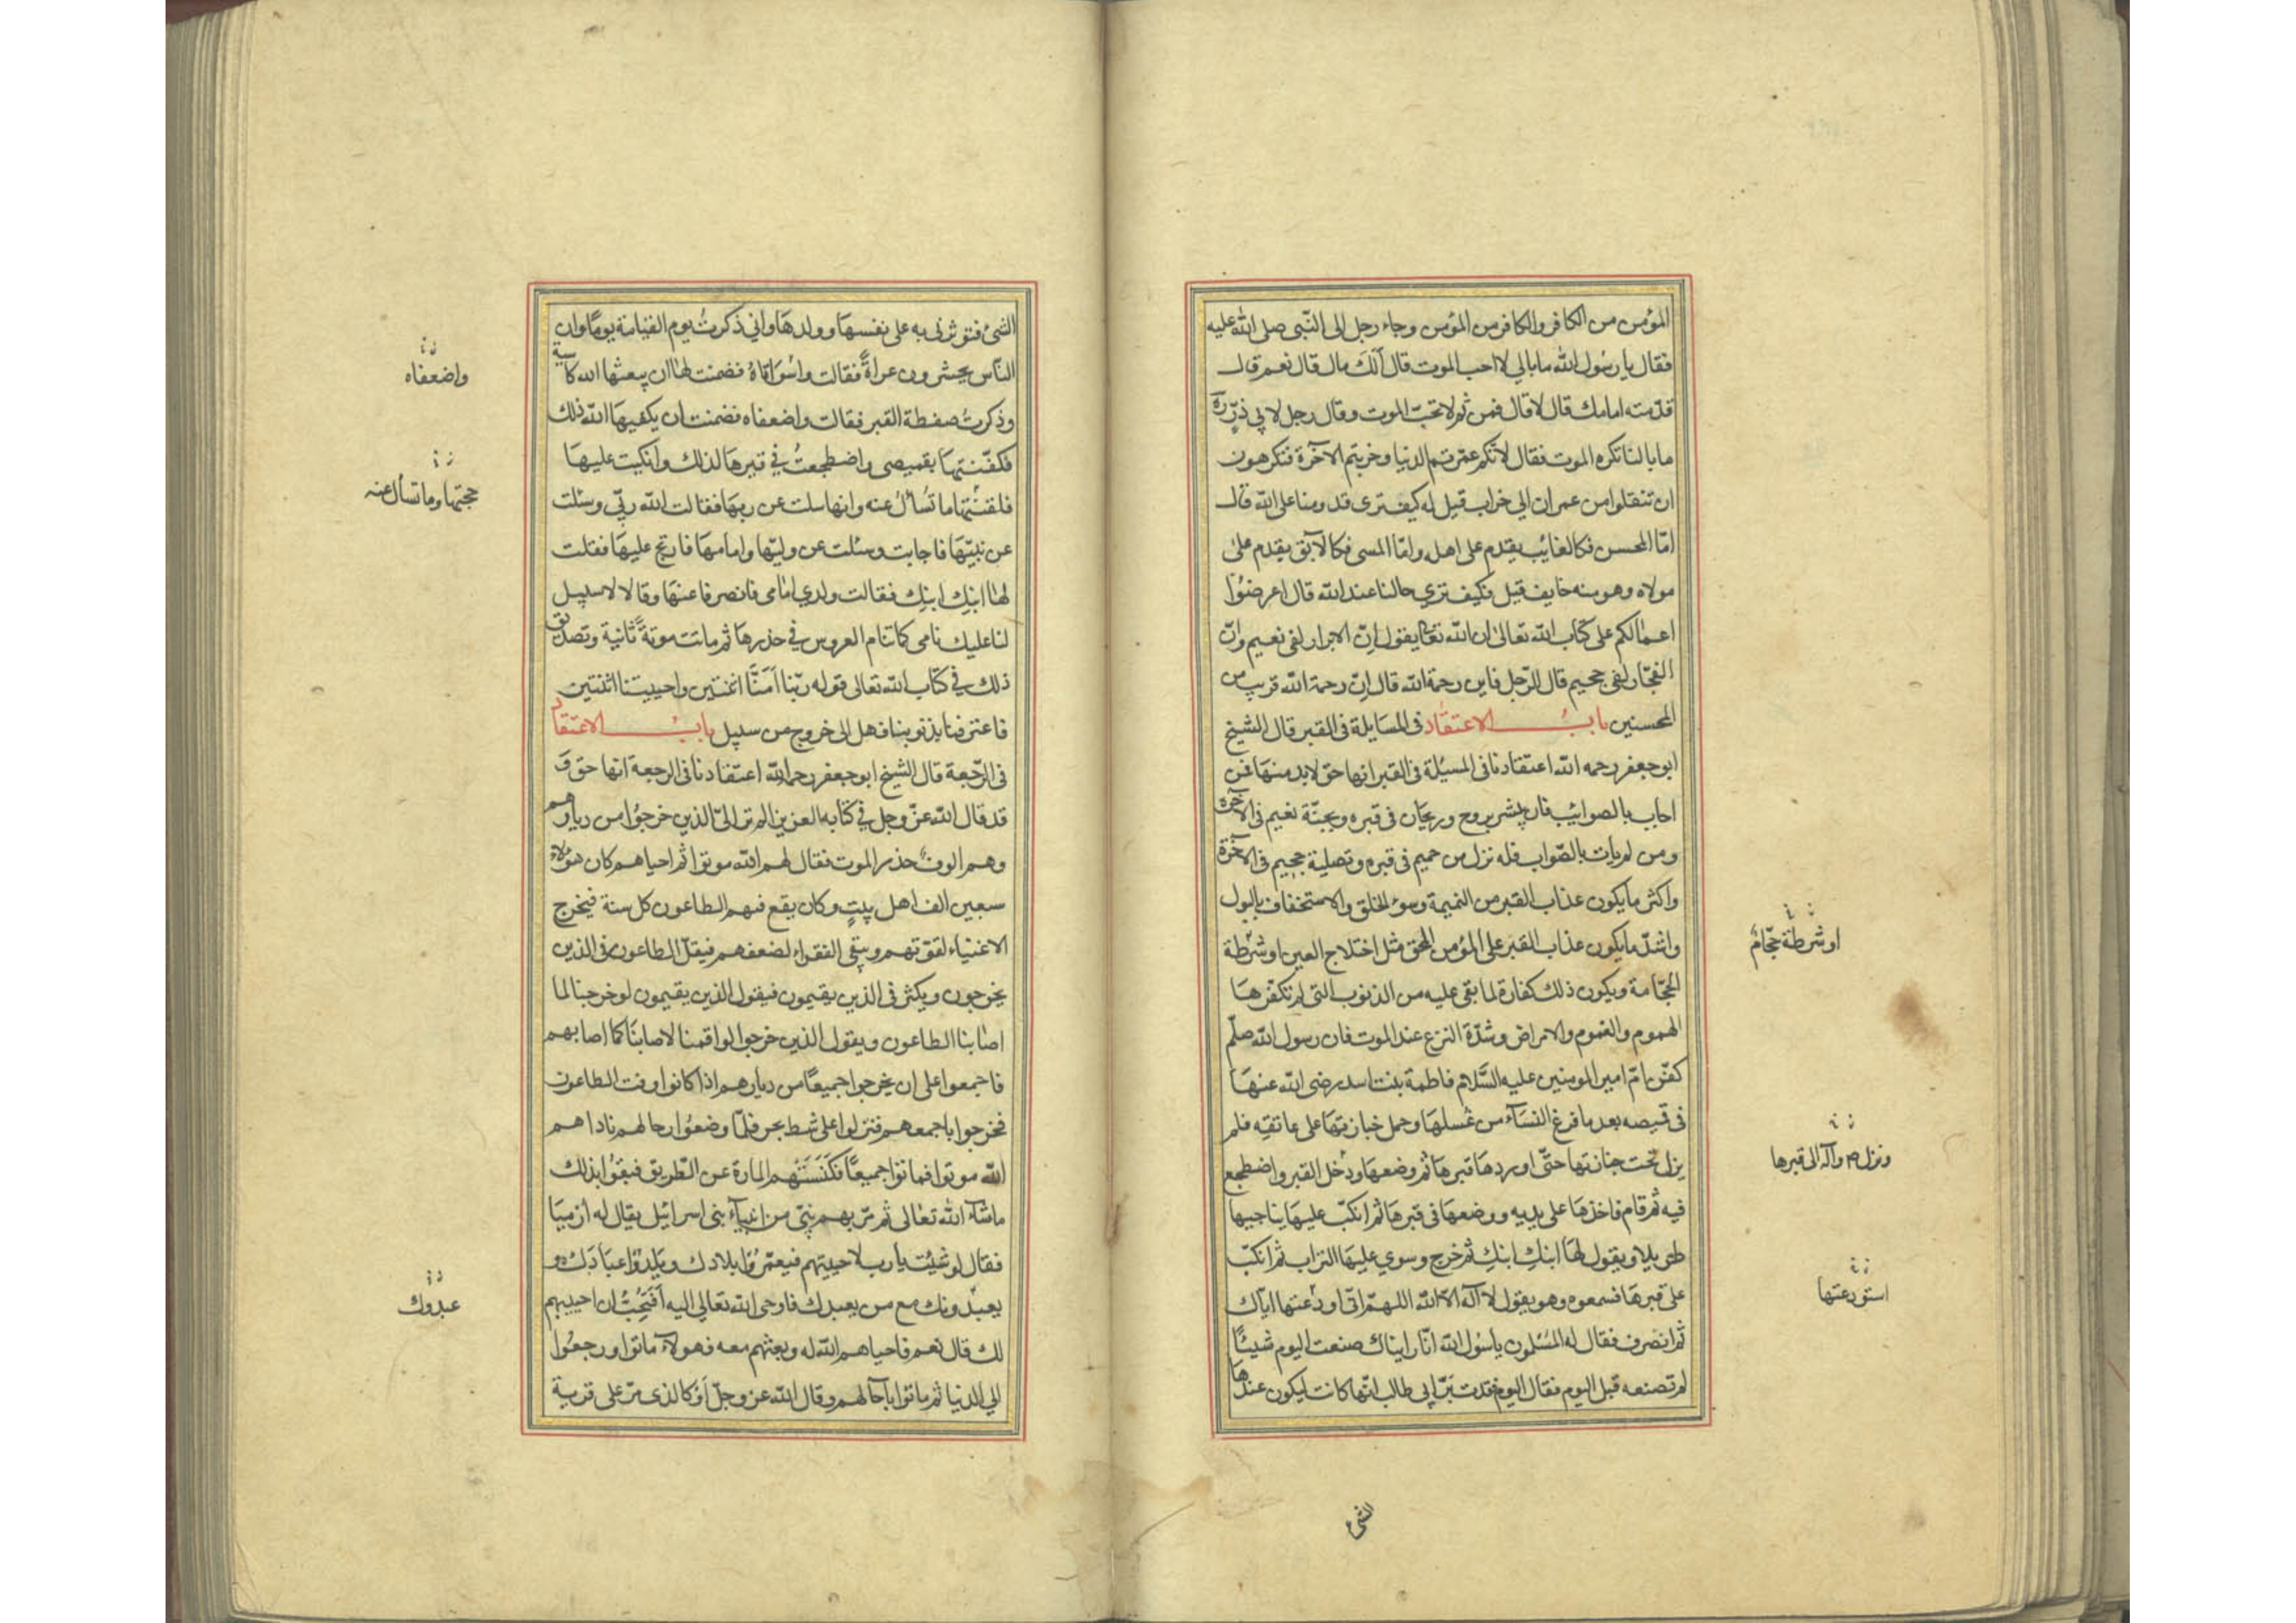 المؤمن من الكافر والكافر من المؤمن وجاء رجل الى النّبى صلى الله عليه
فقال يا رسول الله ما بالي لا احب الموت قال ألك مال قال نعم قال
قدّمته امامك قال لا قال فمن ثم لا تحبّ الموت وقال رجل لابي ذرّ ره
ما بالنا نكره الموت فقال لانكم عمّرتم الدنيا وخربتم الآخرة فتكرهون
ان تنقلوا من عمران الي خراب قيل له كيف ترى قدومنا على الله قال
امّا المحسن فكالغايب يقدم على اهله وامّا المسى فكالآبق يقدم على
مولاه وهو منه خايف قيل فكيف تري حالنا عند الله قال اعرضوُا
اعمالكم على كتاب الله تعالى ان الله تعا يقول انّ الابرار لفى نعيم وانّ
الفجّار لفى جحيم قال الرّجل فاين رحمة الله قال انّ رحمة الله قريب من
المحسنين بابُ الاعتقاد فى المسايلة فى القبر قال الشيخ
ابو جعفر رحمه الله اعتقادنا فى المسئلة فى القبر انها حق لابد منها فمن
اجاب بالصواب فان يبشر بروح وريحان فى قبره وبجنّة نعيم فى الآخرة
ومن لم يات بالصّواب فله نزل من حميم فى قبره وتصلية جحيم فى الآخرة
واكثر ما يكون عذاب القبر من النميمة وسوء الخلق والاستخفاف بالبول
واشدّ ما يكون عذاب القبر على المؤمن المحق مثل اختلاج العين او شرطة
الحجّامة ويكون ذلك كفارة لما بقى عليه من الذنوب التى لم تكفّرها
الهموم والغموم والامراض وشدّة النزع عند الموت فان رسول الله صلّم
كفّن امّ امير المومنين عليه السّلام فاطمة بنت اسد رضى الله عنها
فى قميصه بعد ما فرغ النساء من غسلها وحمل جنازتها على عاتقه فلم
يزل تحت جنازتها حتّى اوردها قبرها ثم وضعها ودخل القبر واضطجع
فيه ثم قام فاخذها على يديه ووضعها فى قبرها ثم انكبّ عليها يناجيها
طويلا ويقول لها ابنك ابنك ثم خرج وسوي عليها التراب ثم انكبّ
على قبرها فسمعوه وهو يقول لا اله الا الله اللهمّ انى اودعتها اياك
ثم انصرف فقال له المسلمون يا رسول الله انّا رايناك صنعت اليوم شيئًا
لم تصنعه قبل اليوم فقال اليوم فقدت برّ ابي طالب انّها كانت ليكون عندها
او شرطة حجّام
ونزل ص وآله الى قبرها
استودعتها
الشى
الشئ فتوثرنى به على نفسها وولدها واني ذكرتُ يوم القيامة يومًا وان
النّاس يحشرون عراة فقالت واسوأتاه فضمنت لها ان يبعثها الله كاسية
وذكرتُ ضغطة القبر فقالت واضعفاه فضمنت ان يكفيها الله ذلك
فكفّنتها بقميصى واضطجعتُ في قبرها لذلك وانكبت عليها
فلقنتها ما تُسأل عنه وانها سئلت عن ربها فقالت الله ربّي وسئلت
عن نبيّها فاجابت وسئلت عن وليّها وامامها فارتج عليها فقلت
لها ابنك ابنك فقالت ولدي امامى فانصرفا عنها وقالا لا سبيل
لنا عليك نامى كما تنام العروس في خدرها ثم ماتت موتة ثانية وتصديق
ذلك في كتاب الله تعالى قوله ربّنا امتنّا اثنتين واحييتنا اثنتين
فاعترفنا بذنوبنا فهل الى خروج من سبيل بابُ الاعتقاد
فى الرّجعة قال الشيخ ابو جعفر رحمه الله اعتقادنا فى الرجعة انها حق و
قد قال الله عزّ وجل في كتابه العزيز الم تر الى الذين خرجوا من ديارهم
وهم الوف حذر الموت فقال لهم الله موتوا ثم احياهم كان هؤلاء
سبعين الف اهل بيتٍ وكان يقع فيهم الطاعون كل سنة فيخرج
الاغنياء لقوّتهم ويبقى الفقراء لضعفهم فيقلّ الطاعون فى الذين
يخرجون ويكثر فى الذين يقيمون فيقول الذين يقيمون لو خرجنا لما
اصابنا الطاعون ويقول الذين خرجوا لو اقمنا لاصابنا كما اصابهم
فاجمعوا على ان يخرجوا جميعًا من ديارهم اذا كانوا وقت الطاعون
فخرجوا باجمعهم فنزلوا على شط بحر فلمّا وضعوُا رحالهم ناداهم
الله موتوا فماتوا جميعًا فكنستهم المارة عن الطّريق فبقوا بذلك
ما شاء الله تعالى ثم مرّ بهم نبىّ من انبياء بنى اسرائيل يقال له ارميا
فقال لو شئت يا رب لاحييتهم فيعمّروُا بلادك ويلدوا عبادك و
يعبدونك مع من يعبدك فاوحى الله تعالى اليه أفتحبُّ ان احييهم
لك قال نعم فاحياهم الله له وبعثهم معه فهولاء ماتوا ورجعوُا
الي الدنيا ثم ماتوا بآجالهم وقال الله عز وجلّ أو كالذى مرّ على قرية
واضعفاه
حجتها وما تسأل عنه
عبدوك